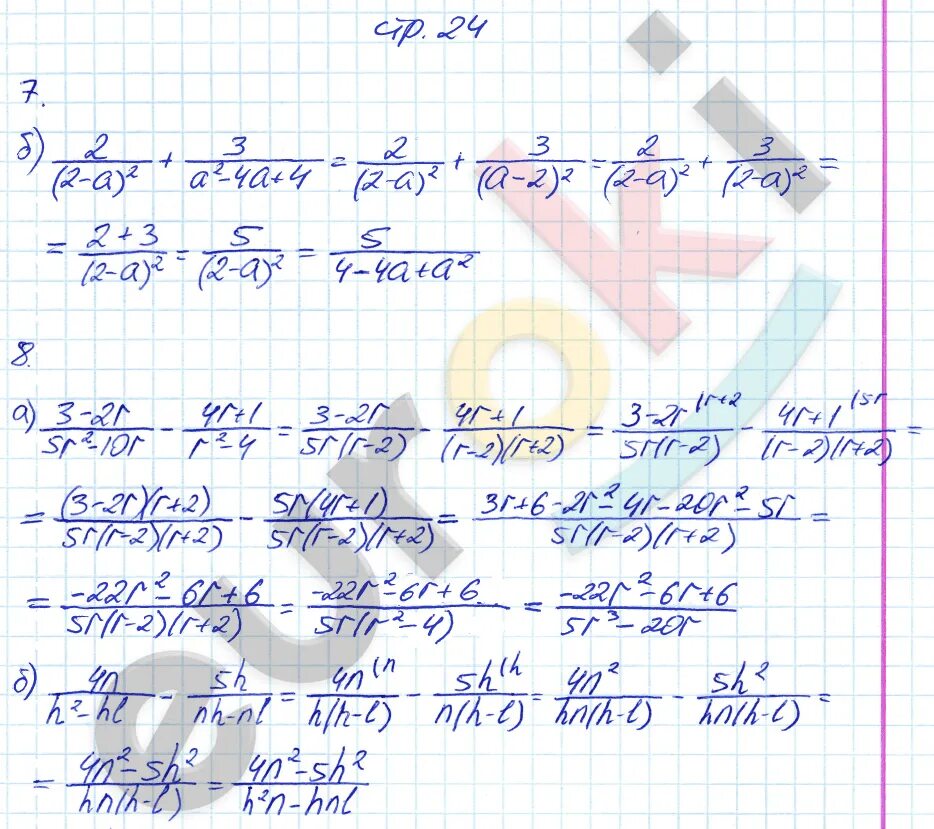 стр. 24
7.
б) 2/(2-a)² + 3/(a²-4a+4) = 2/(2-a)² + 3/(a-2)² = 2/(2-a)² + 3/(2-a)² =
= (2+3)/(2-a)² = 5/(2-a)² = 5/(4-4a+a²)
8.
а) (3-2r)/(5r²-10r) - (4r+1)/(r²-4) = (3-2r)/(5r(r-2)) - (4r+1)/((r-2)(r+2)) = (3-2r)/(5r(r-2)) ⁽ʳ⁺² - (4r+1)/((r-2)(r+2)) ⁽⁵ʳ =
= ((3-2r)(r+2))/(5r(r-2)(r+2)) - (5r(4r+1))/(5r(r-2)(r+2)) = (3r+6-2r²-4r-20r²-5r)/(5r(r-2)(r+2)) =
= (-22r²-6r+6)/(5r(r-2)(r+2)) = (-22r²-6r+6)/(5r(r²-4)) = (-22r²-6r+6)/(5r³-20r)
б) 4n/(h²-hl) - 5h/(nh-nl) = 4n/(h(h-l)) ⁽ⁿ - 5h/(n(h-l)) ⁽ʰ = 4n²/(hn(h-l)) - 5h²/(hn(h-l)) =
= (4n²-5h²)/(hn(h-l)) = (4n²-5h²)/(h²n-hnl)
euroki